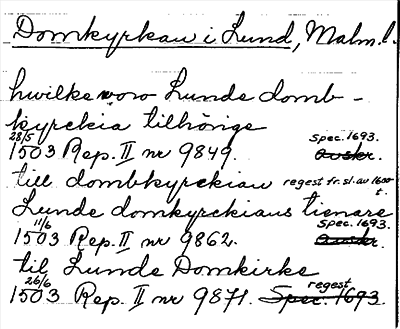 Domkyrkan i Lund, Malm. l.
hwilke woro Lunde domb-
kyrckia tilhörige
28/5 1503 Rep. II nr 9849. Spec. 1693. avskr.
till dombkyrckian regest fr. sl. av 1600-t.
Lunde domkyrckians tienare
11/6 1503 Rep. II nr 9862. Spec. 1693. avskr.
til Lunde Domkirke
26/6 1503 Rep. II nr 9871. Spec. 1693. regest